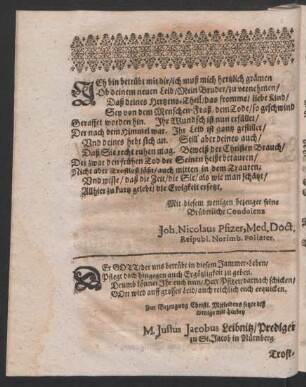 Ich bin betrübt mit dir/ich muß mich hertzlich grämen
Ob deinem neuen Leid/Mein Bruder/zu vernehmen/
Daß deines Hertzens-Theil/das fromme/liebe Kind/
Sey von dem Menschen-Fraß/dem Tode/so geschwind
Geraffet worden hin. Ihr Wundsch ist nun erfüllet/
Der nach dem Himmel war. Ihr Leib ist gantz gestillet/
Und deines hebt sich an. Still aber deines auch/
Daß Sie recht ruhen mag. Beweiß der Christen Brauch/
Der zwar den frühen Tod der Seinen heißt betauren/
Nicht aber Trostloß läßt/auch mitten in dem Trauren;
Und wisse/daß die Zeit/die Sie/als wie man schätzt/
Allhier zu kurtz gelebt/die Ewigkeit ersetzt.
Mit diesem wenigen bezeuget seine
Brüderliche Condolenz
Joh. Nicolaus Pfizer, Med. Doct.
Reipubl. Norimb. Poliater.
Der GOTT/der uns betrübt in diesem Jammer-Leben/
Pflegt doch hingegen auch Ergötzligkeit zu geben.
Drumb könnet Ihr euch nun/Herr Pfizer/darnach schicken/
ODer wird auff grosses Leid/auch reichlich euch erquicken.
Zur Bezeugung Christl. Mitleidens setzte diß
wenige mit hinbey
M. Justus Jacobus Leibnitz/Prediger
zu St. Jacob in Nürnberg.
Trost-